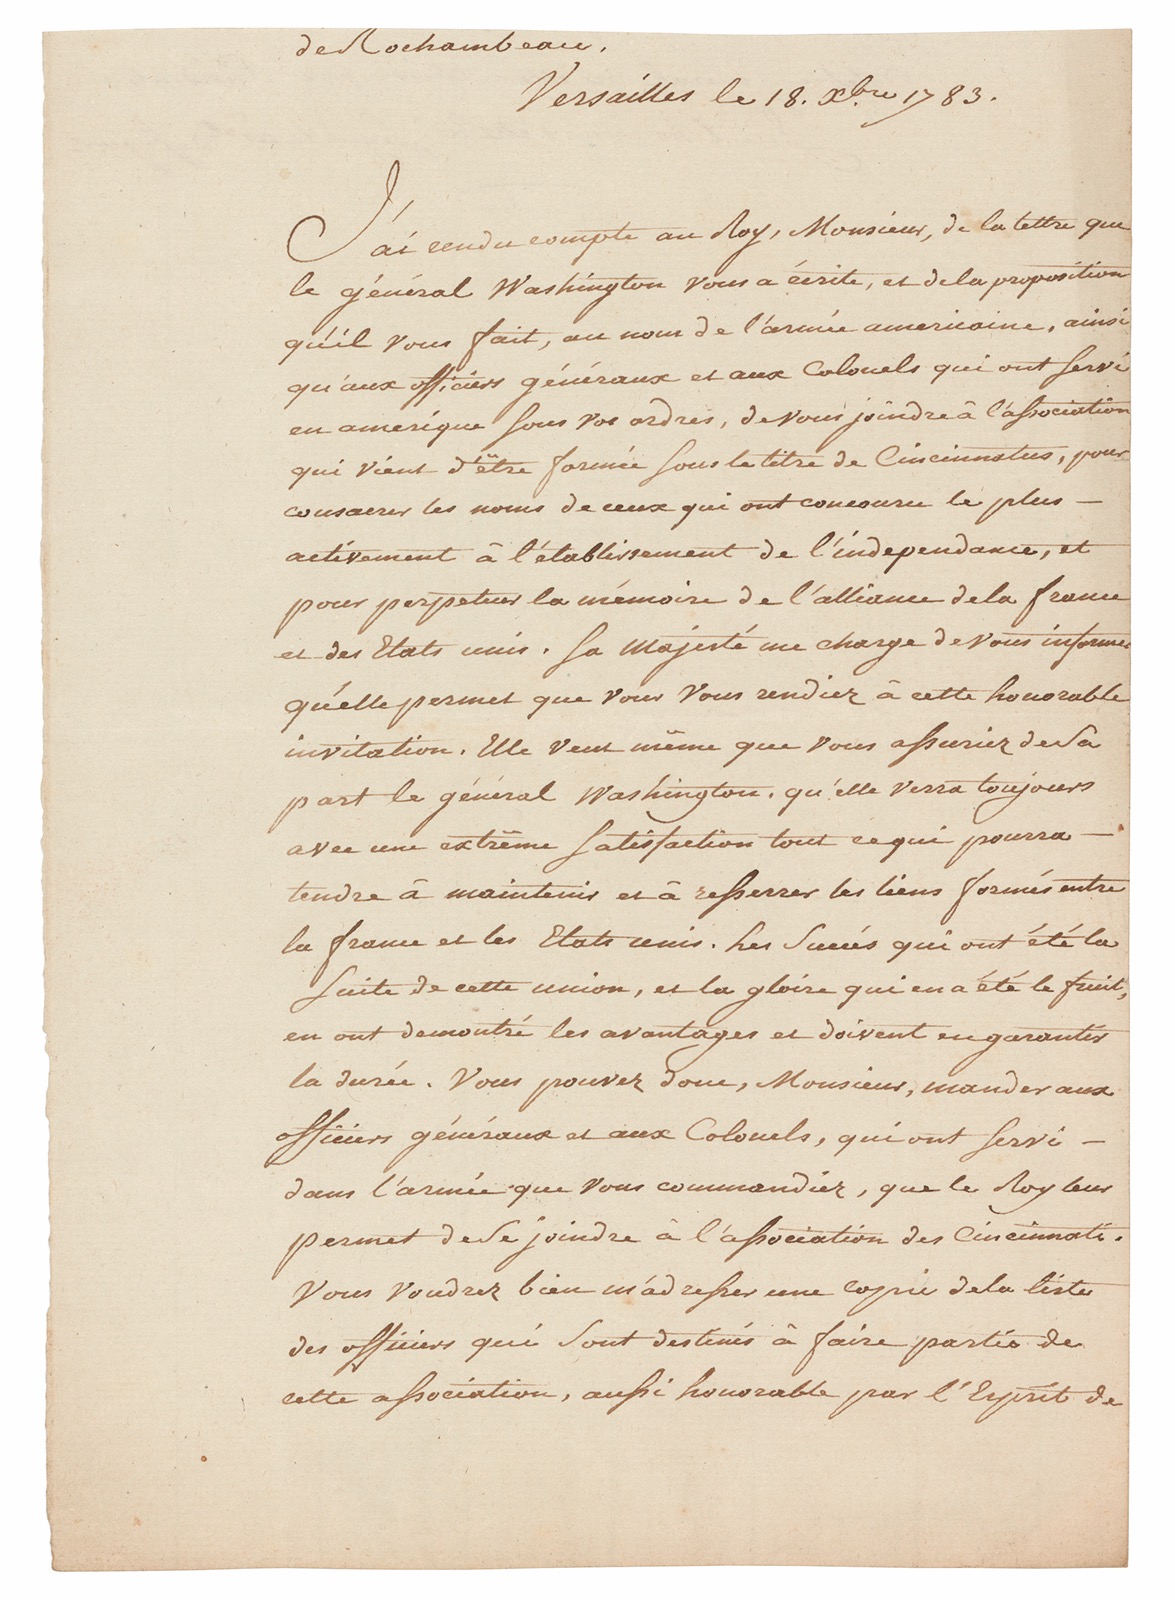 de Rochambeau.
Versailles le 18. Xbre 1783.
J'ai rendu compte au Roy, Monsieur, de la lettre que
le général Washington vous a écrite, et de la proposition
qu'il vous fait, au nom de l'armée americaine, ainsi
qu'aux officiers généraux et aux Colonels qui ont servi
en amerique sous vos ordres, de vous joindre à l'association
qui vient d'être formée sous le titre de Cincinnatus, pour
consacrer les noms de ceux qui ont concouru le plus —
activement à l'établissement de l'indépendance, et
pour perpetuer la mémoire de l'alliance de la france
et des Etats unis. Sa Majesté me charge de vous informer
qu'elle permet que vous vous rendiez à cette honorable
invitation. Elle veut même que vous assuriez de Sa
part le général Washington. qu'elle verra toujours
avec une extrême satisfaction tout ce qui pourra —
tendre à maintenir et à resserrer les liens formés entre
la france et les Etats unis. Les Succés qui ont été la
suite de cette union, et la gloire qui en a été le fruit,
en ont demontré les avantages et doivent en garantir
la durée. Vous pouvez donc, Monsieur, mander aux
officiers généraux et aux Colonels, qui ont servi —
dans l'armée que vous commandiez, que le Roy leur
permet de Se joindre à l'association des Cincinnati.
Vous voudrez bien m'adresser une copie de la liste
des officiers qui Sont destinés à faire partie de
cette association, aussi honorable par l'Esprit de